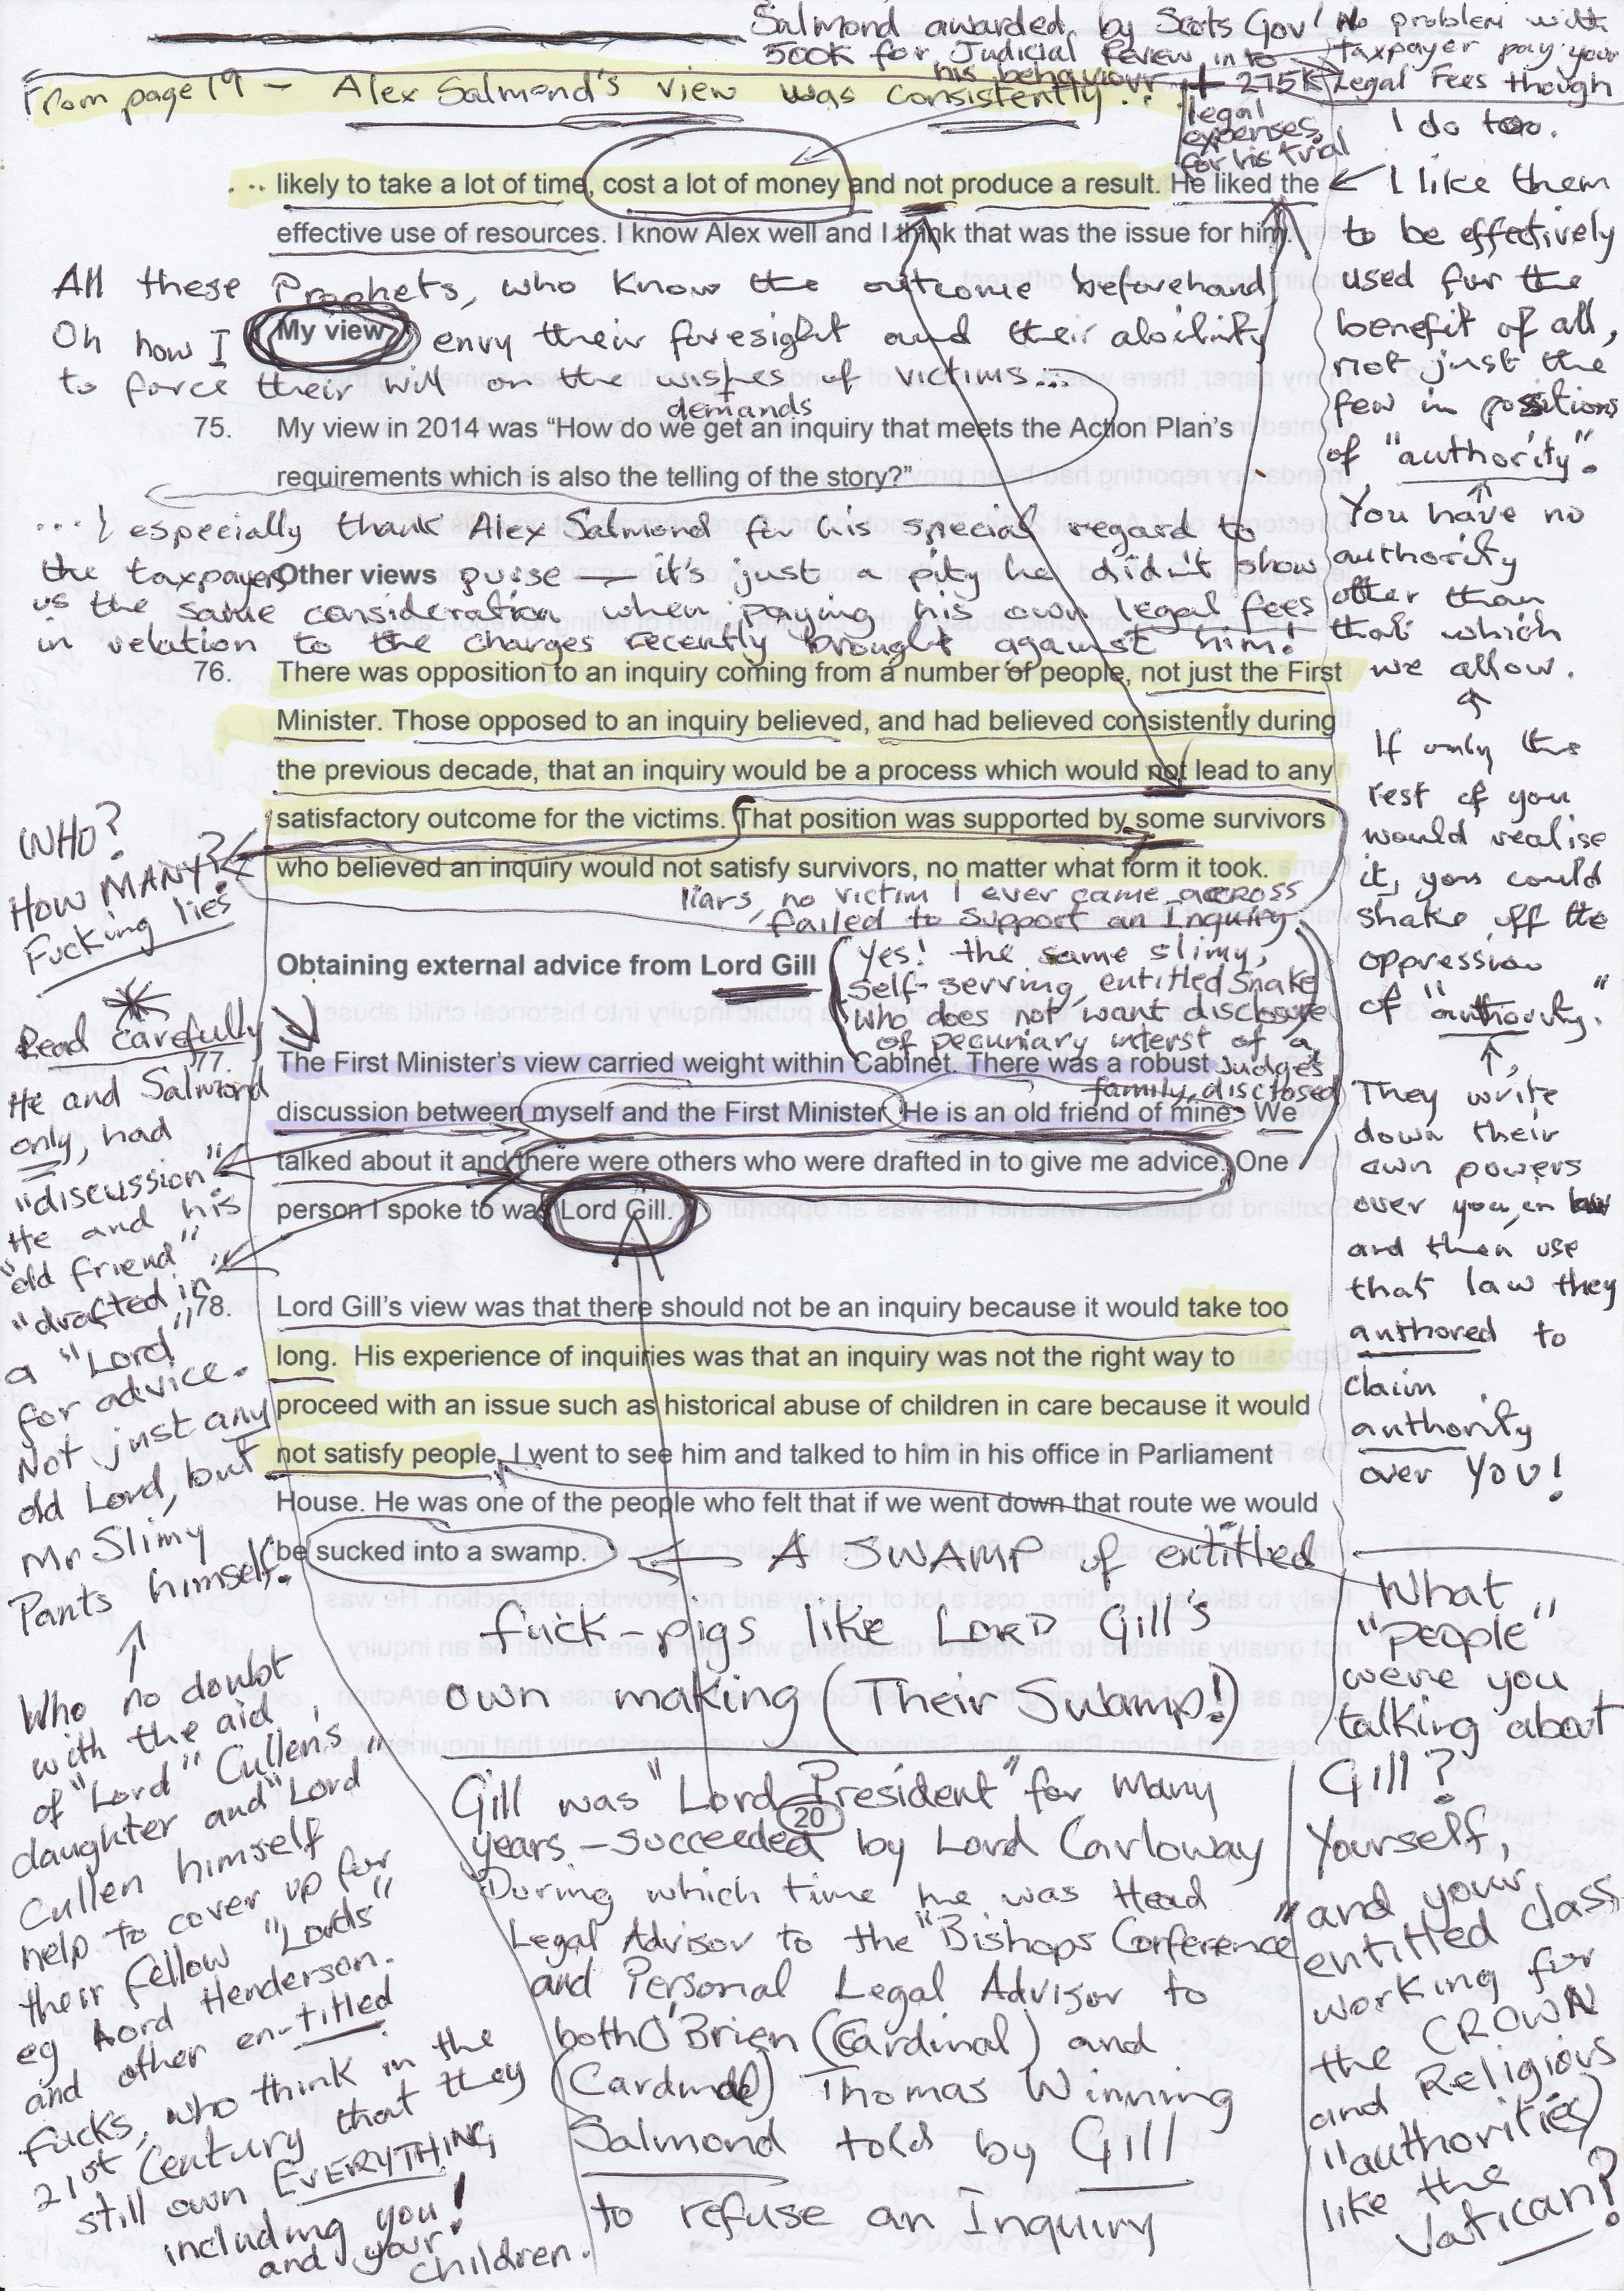 Salmond awarded by Scots Gov!
500K for Judicial Review into
his behaviour
+ 275K
legal
expenses
for his trial
No problem with
taxpayer pay your
Legal Fees though
I do too.
From page 19 - Alex Salmond's view was consistently...
... likely to take a lot of time, cost a lot of money and not produce a result. He liked the
effective use of resources. I know Alex well and I think that was the issue for him.
All these Prophets, who know the outcome beforehand
Oh how I envy their foresight and their abilirity
My view
to force their will on the wishes of victims...
demands
75. My view in 2014 was “How do we get an inquiry that meets the Action Plan’s
requirements which is also the telling of the story?”
... I especially thank Alex Salmond for his special regard to
the taxpayers purse — it's just a pity he didn't show
Other views
us the same consideration when paying his own legal fees
in relation to the charges recently brought against him!
76. There was opposition to an inquiry coming from a number of people, not just the First
Minister. Those opposed to an inquiry believed, and had believed consistently during
the previous decade, that an inquiry would be a process which would not lead to any
satisfactory outcome for the victims. That position was supported by some survivors
who believed an inquiry would not satisfy survivors, no matter what form it took.
liars, no victim I ever came across
failed to support an Inquiry.
Obtaining external advice from Lord Gill
(Yes! the same slimy,
self-serving, entitled Snake
who does not want disclosure
of pecuniary interst of a
Judges
family, disclosed)
77. The First Minister’s view carried weight within Cabinet. There was a robust
discussion between myself and the First Minister. He is an old friend of mine. We
talked about it and there were others who were drafted in to give me advice. One
person I spoke to was Lord Gill.
78. Lord Gill’s view was that there should not be an inquiry because it would take too
long. His experience of inquiries was that an inquiry was not the right way to
proceed with an issue such as historical abuse of children in care because it would
not satisfy people. I went to see him and talked to him in his office in Parliament
House. He was one of the people who felt that if we went down that route we would
be sucked into a swamp.
A SWAMP of entitled
fuck-pigs like LORD Gill's
own making (Their Swamp!)
Gill was "Lord President" for Many
20
years - succeeded by Lord Carloway
During which time he was Head
Legal Advisor to the "Bishops Conference"
and Personal Legal Advisor to
both O'Brien (Cardinal) and
(Cardinal) Thomas Winning
Salmond told by Gill
to refuse an Inquiry
WHO?
HOW MANY?
Fucking lies
Read carefully
He and Salmond
only, had
"discussion"
He and his
"old friend"
"drafted in"
a "Lord"
for advice.
Not just any
old Lord, but
Mr Slimy
Pants himself.
Who no doubt
with the aid
of "Lord" Cullen's
daughter and "Lord"
Cullen himself
help to cover up for
their fellow "Lords"
eg Lord Henderson.
and other en-titled
fucks, who think in the
21st Century that they
still own EVERYTHING
including you!
and your
children.
I like them
to be effectively
used for the
benefit of all,
not just the
few in positions
of "authority".
You have no
authority
other than
that which
we allow.
If only the
rest of you
would realise
it, you could
shake off the
oppression
of "authority."
They write
down their
own powers
over you, in law
and then use
that law they
authored to
claim
authority
over YOU!
What
"people"
were you
talking about
Gill?
Yourself,
and your
entitled class
working for
the CROWN
and Religious
"authorities"
like the
Vatican?